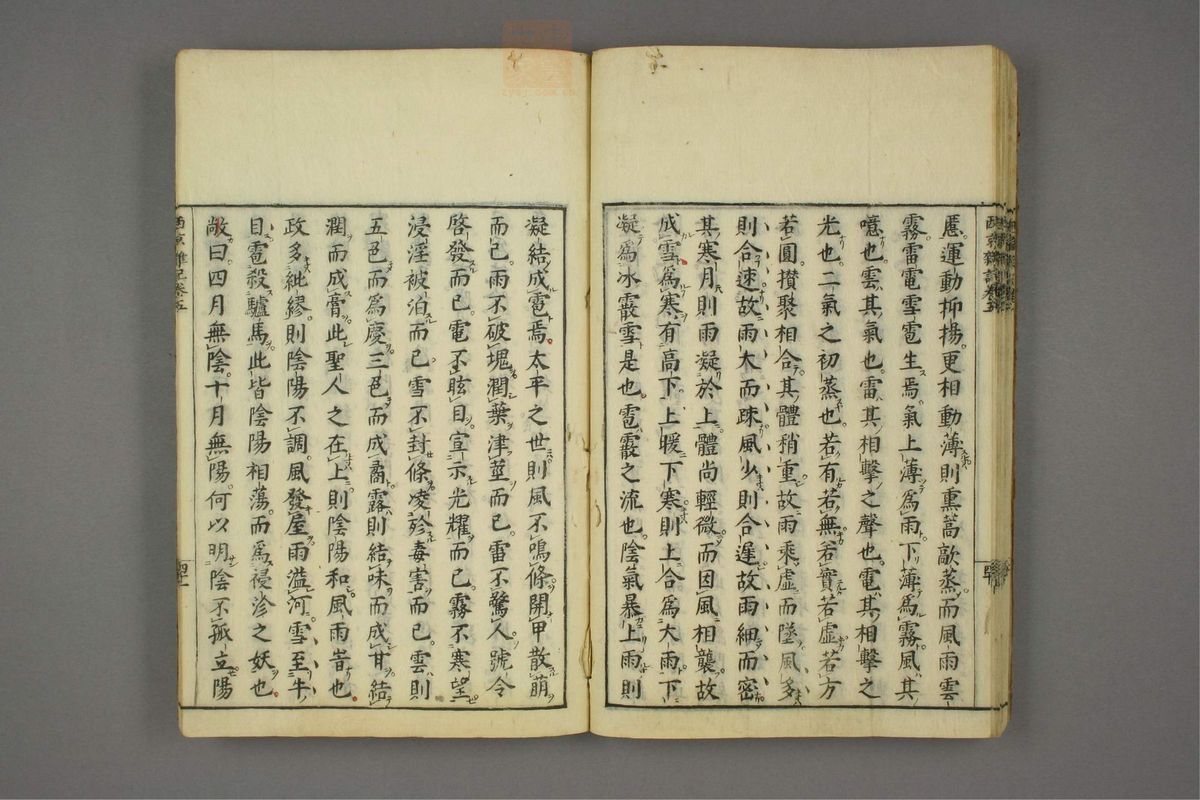 愿運動抑揚更相動薄則熏蒿歊蒸而風雨雲
霧雷電雪雹生焉氣上薄為雨下薄為霧風其
噫也雲其氣也雷其相擊之聲也電其相擊之
光也二氣之初蒸也若有若無若實若虛若方
若圓攢聚相合其體稍重故雨乘虛而墜風多
則合速故雨大而疎風少則合遲故雨細而密
其寒月則雨凝於上體尚輕微而因風相襲故
成雪焉寒有高下上暖下寒則上合為大雨下
凝為冰霰雪是也雹霰之流也陰氣暴上雨則
凝結成雹焉太平之世則風不鳴條開甲散萌
而已雨不破塊潤葉津莖而已雷不驚人號令
啓發而已電不眩目宣示光耀而已霧不寒望
浸淫被泊而已雪不封條凌殄毒害而已雲則
五色而為慶三色而成矞露則結味而成甘結
潤而成膏此聖人之在上則陰陽和風雨旹也
政多紕繆則陰陽不調風發屋雨溢河雪至牛
目雹殺驢馬此皆陰陽相蕩而為祲沴之妖也
敞曰四月無陰十月無陽何以明陰不孤立陽
西京雜記卷五